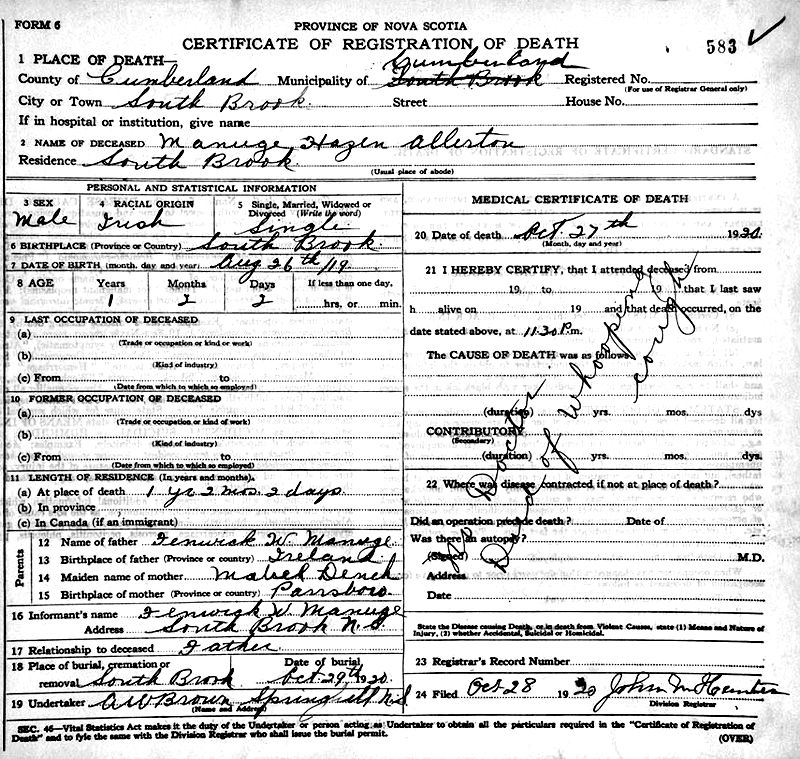 FORM 6
PROVINCE OF NOVA SCOTIA
CERTIFICATE OF REGISTRATION OF DEATH
583
1 PLACE OF DEATH—
Cumberland
County of Cumberland Municipality of South Brook Registered No.
(For use of Registrar General only)
City or Town South Brook. Street House No.
If in hospital or institution, give name
2 NAME OF DECEASED Manuge Hazen Allerton
Residence South Brook.
(Usual place of abode)
PERSONAL AND STATISTICAL INFORMATION
3 SEX 4 RACIAL ORIGIN 5 Single, Married, Widowed or Divorced (Write the word)
Male Irish Single
6 BIRTHPLACE (Province or Country) South Brook.
7 DATE OF BIRTH (month, day and year) Aug 26th /19
8 AGE Years Months Days If less than one day,
1 2 2 hrs. or min.
9 LAST OCCUPATION OF DECEASED
(a)
(Trade or occupation or kind or work)
(b)
(Kind of industry)
(c) From to
(Date from which to which so employed)
10 FORMER OCCUPATION OF DECEASED
(a)
(Trade or occupation or kind of work)
(b)
(Kind of industry)
(c) From to
(Date from which to which so employed)
11 LENGTH OF RESIDENCE (In years and months).
(a) At place of death 1 yr 2 mos. 2 days.
(b) In province
(c) In Canada (if an immigrant)
Parents
12 Name of father Fenwick W. Manuge
13 Birthplace of father (Province or country) Ireland
14 Maiden name of mother Mabel
15 Birthplace of mother (Province or country) Parrsboro
16 Informant's name Fenwick W Manuge
Address South Brook N.S
17 Relationship to deceased Father
18 Place of burial, cremation or removal South Brook Date of burial, Oct. 29th 1920
19 Undertaker A W Brown Springhill N.S
(Name and Address)
MEDICAL CERTIFICATE OF DEATH
20 Date of death Oct. 27th 1920.
(Month, day and year)
21 I HEREBY CERTIFY, that I attended deceased from
19 , to 19 , that I last saw
h alive on 19 and that death occurred, on the
date stated above, at 11.30 P.m.
The CAUSE OF DEATH was as follows
No Doctor.
Died of whooping cough
(duration) yrs. mos. dys
CONTRIBUTORY
(Secondary)
(duration) yrs. mos. dys.
22 Where was disease contracted, if not at place of death?
Did an operation precede death? Date of
Was there an autopsy?
(Signed) M.D.
Address
Date
State the Disease causing Death, or in death from Violent Causes, state (1) Means and Nature of Injury, (2) whether Accidental, Suicidal or Homicidal.
23 Registrar's Record Number
24 Filed Oct 28 1920 John McHunter
Division Registrar
SEC. 46—Vital Statistics Act makes it the duty of the Undertaker or person acting as Undertaker to obtain all the particulars required in the "Certificate of Registration of
Death" and to fyle the same with the Division Registrar who shall issue the burial permit.
(OVER)